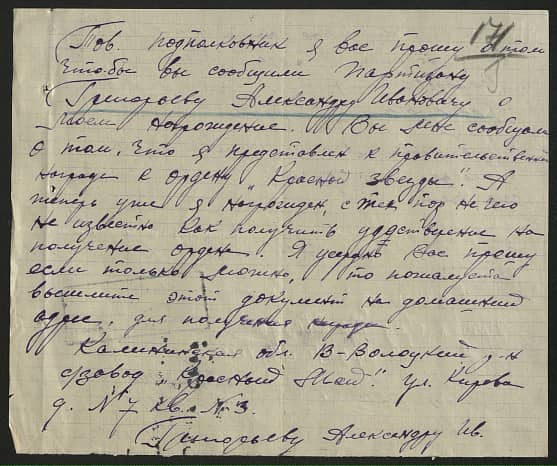 171
Тов. подполковник я вас прошу о том
что-бы вы сообщили Партизану
Григорьеву Александру Ивановичу о
моем награждение. Вы мне сообщали
о том, что я представлен к правительственной
награде к ордену "Красной звезды". А
теперь уже я награжден, с тех пор не чего
не известно как получить удостверение на
получение орден. Я усердно Вас прошу
если только можно, то пожалуста
вышлите этот документ на домашний
адрес, для получения награды.
Калининская обл. В-Волоцкий р-н
с/завод "Красный Май". ул. Кирова
д. №7 кв. №3.
Григорьеву Александру Ив.